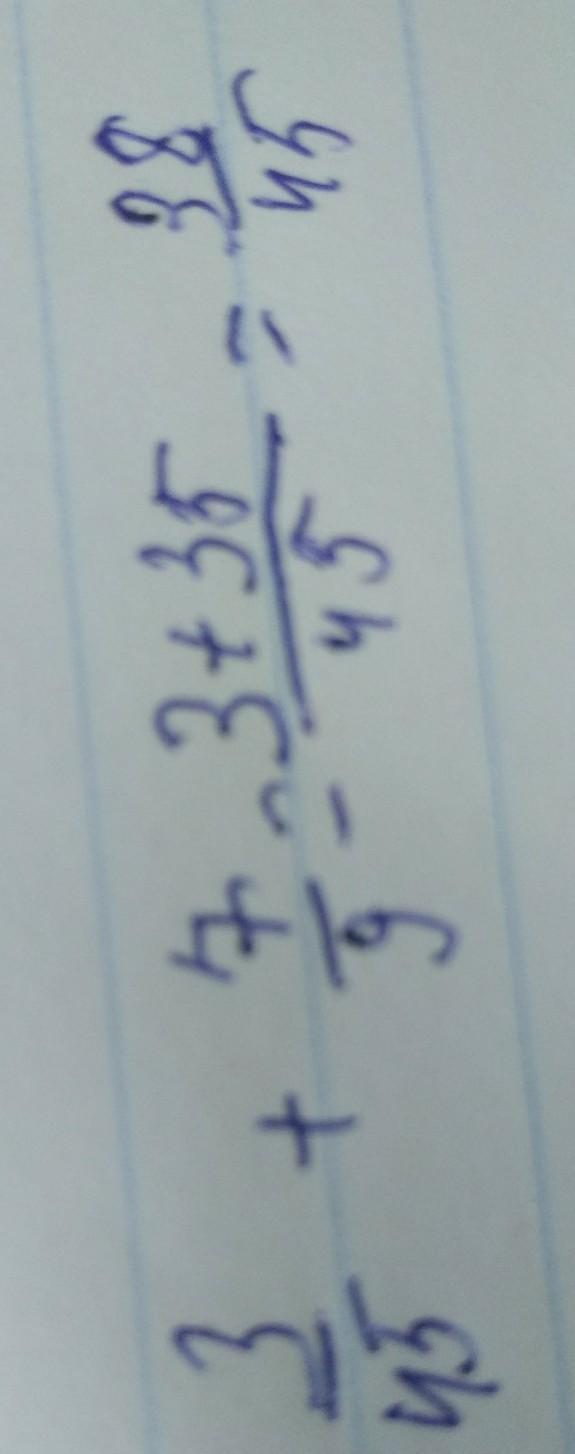 3/45 + 7/9 = 3+35/45 = 38/45